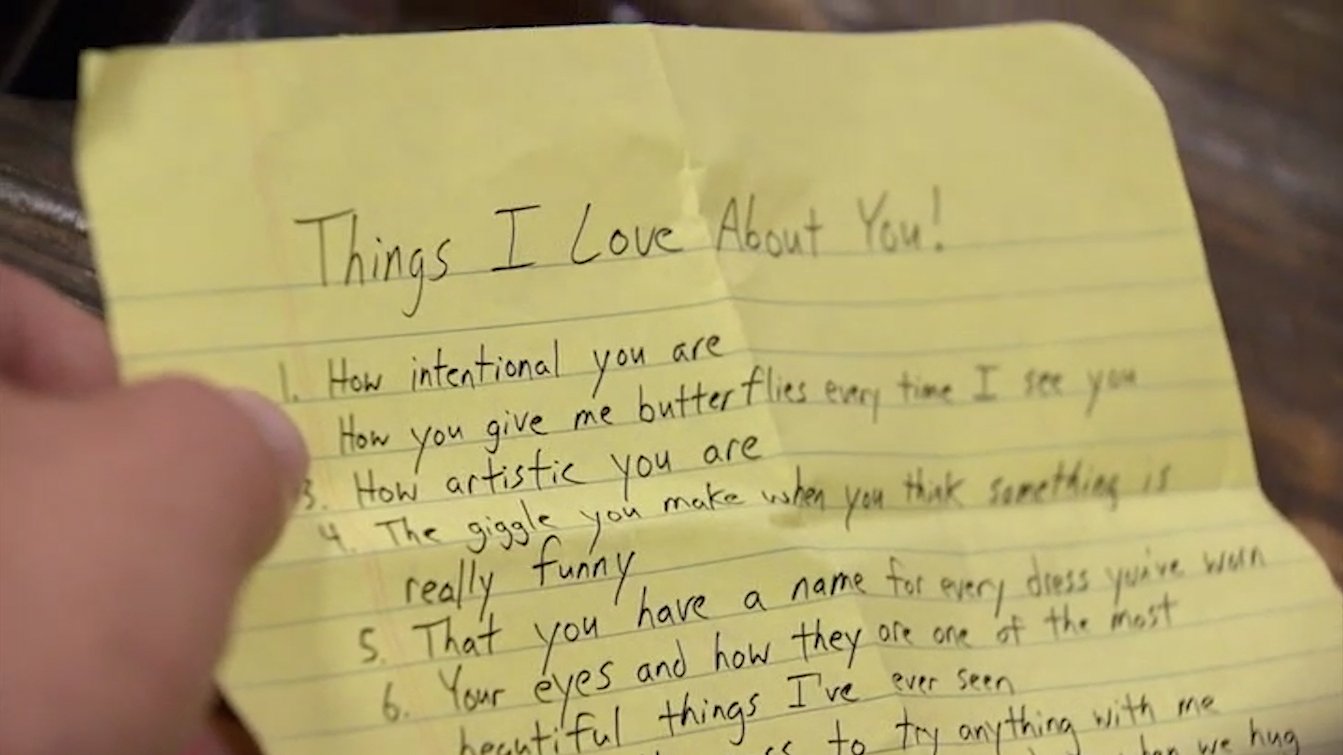 Things I Love About You!
1. How intentional you are
How you give me butterflies every time I see you
3. How artistic you are
4. The giggle you make when you think something is
really funny
5. That you have a name for every dress you've worn
6. Your eyes and how they are one of the most
beautiful things I've ever seen
to try anything with me
when we hug